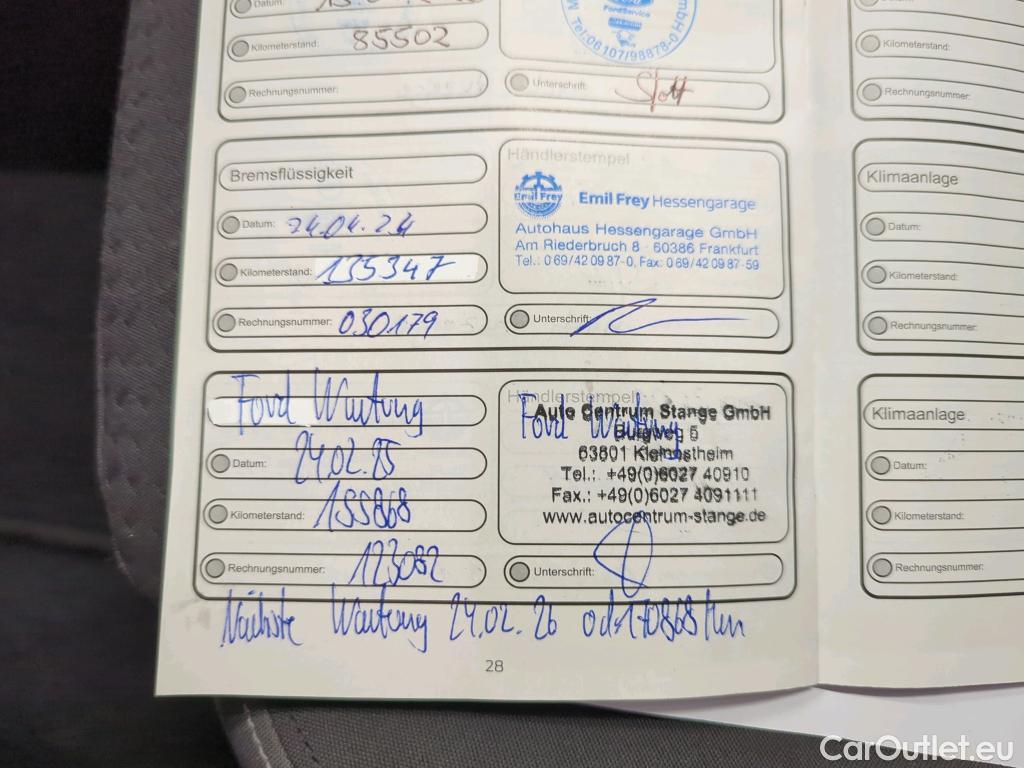 Datum:
Kilometerstand: 85502
Rechnungsnummer:
FordService
Tel:06107/98878-0
Unterschrift:
Kilometerstand:
Rechnungsnummer:
Bremsflüssigkeit
Datum: 24.04.24
Kilometerstand: 135347
Rechnungsnummer: 030179
Händlerstempel
Emil Frey
Emil Frey Hessengarage
Autohaus Hessengarage GmbH
Am Riederbruch 8 · 60386 Frankfurt
Tel.: 0 69/42 09 87-0, Fax: 0 69/42 09 87-59
Unterschrift:
Klimaanlage
Datum:
Kilometerstand:
Rechnungsnummer:
Ford Wartung
Datum: 24.02.25
Kilometerstand: 155868
Rechnungsnummer: 123082
Händlerstempel
Ford Wartung
Auto Centrum Stange GmbH
Burgweg 5
63801 Kleinostheim
Tel.: +49(0)6027 40910
Fax.: +49(0)6027 4091111
www.autocentrum-stange.de
Unterschrift:
Klimaanlage
Datum:
Kilometerstand:
Rechnungsnummer:
Nächste Wartung 24.02.26 od. 170868 km
28
CarOutlet.eu